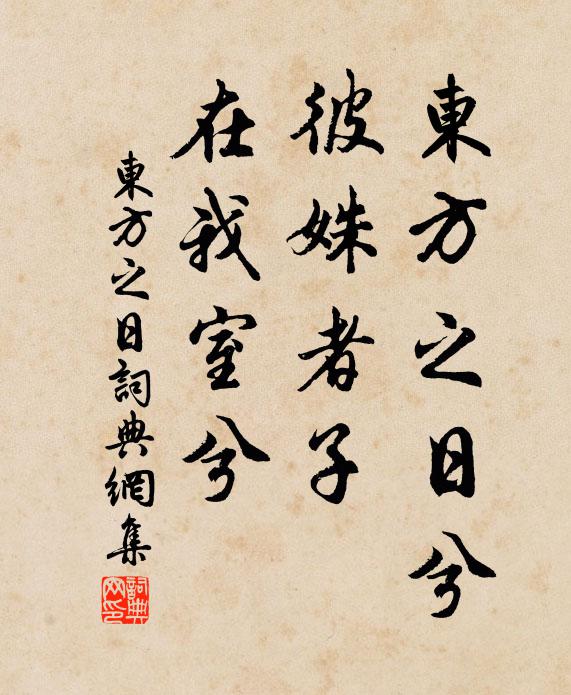 東方之日兮
彼姝者子
在我室兮
東方之日詞典網集
詞典
网印